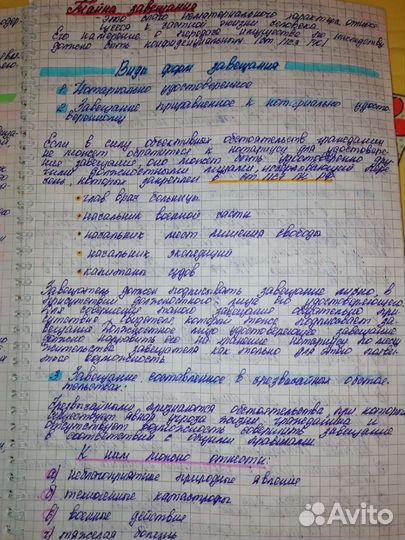 Тайна завещания
это благо нематериального характера, относя-
щееся к частной жизни человека.
Его намерение о передаче имущества по наследству
должно быть конфиденциальным (ст. 1123 ГК)
Виды форм завещания
1. Нотариально удостоверенное
2. Завещание приравненное к нотариально удосто-
веренному
Если в силу объективных обстоятельств гражданин
не может обратиться к нотариусу для удостовере-
ние завещания, оно может быть удостоверено дру-
гими должностными лицами, исчерпывающий пере-
чень которых закреплен в ст. 1127 ГК РФ:
• глав врач больницы
• начальник военной части
• начальник мест лишения свободы
• начальник экспедиций
• капитаны судов
Завещатель должен подписывать завещание лично, в
присутствие должностного лица его удостоверяющего.
Для совершения такого завещания обязательно при-
сутствие свидетеля, который тоже подписывает за-
вещание. Должностное лицо удостоверяющее завещание
должно направить его на хранение нотариусу по месту
жительства завещателя как только для этого появит-
ся возможность
3. Завещание, составленное в чрезвычайных обстоя-
тельствах.
Чрезвычайными признаются обстоятельства при которых
существует явная угроза жизни гражданина и
отсутствует возможность совершить завещание
в соответствии с общими правилами
К ним можно отнести:
а) неблагоприятные природное явление
б) техногенные катастрофы
в) военное действие
г) тяжелая болезнь
Avito